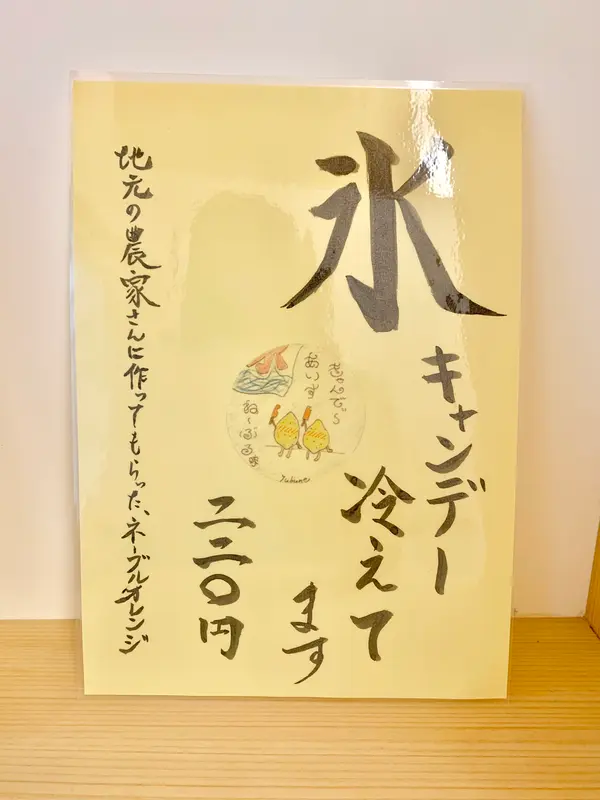 氷
キャンデー
冷えて
ます
二二〇円
地元の農家さんに作ってもらった、ネーブルオレンジ
氷
あいす
きゃんでぃ
ねーぶる